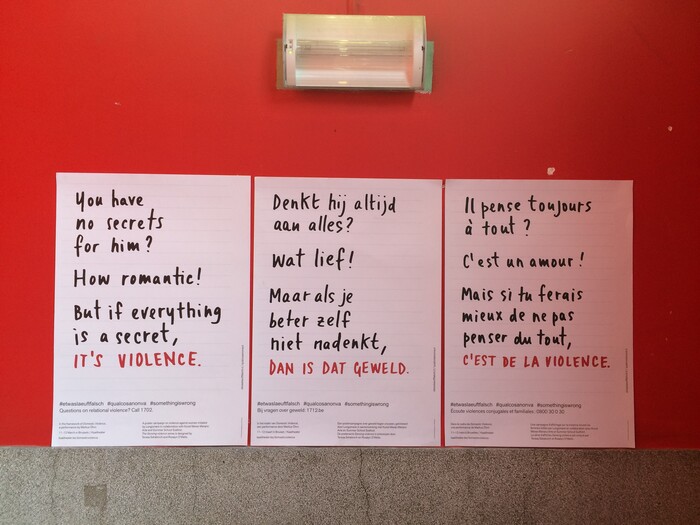 You have
no secrets
for him?
How romantic!
But if everything
is a secret,
IT'S VIOLENCE.
#etwaslaeuftfalsch #qualcosanonva #somethingiswrong
Questions on relational violence? Call 1702.
Denkt hij altijd
aan alles?
Wat lief!
Maar als je
beter zelf
niet nadenkt,
DAN IS DAT GEWELD.
#etwaslaeuftfalsch #qualcosanonva #somethingiswrong
Bij vragen over geweld: 1712.be
Il pense toujours
à tout ?
C'est un amour !
Mais si tu ferais
mieux de ne pas
penser du tout,
C'EST DE LA VIOLENCE.
#etwaslaeuftfalsch #qualcosanonva #somethingiswrong
Écoute violences conjugales et familiales: 0800 30 0 30